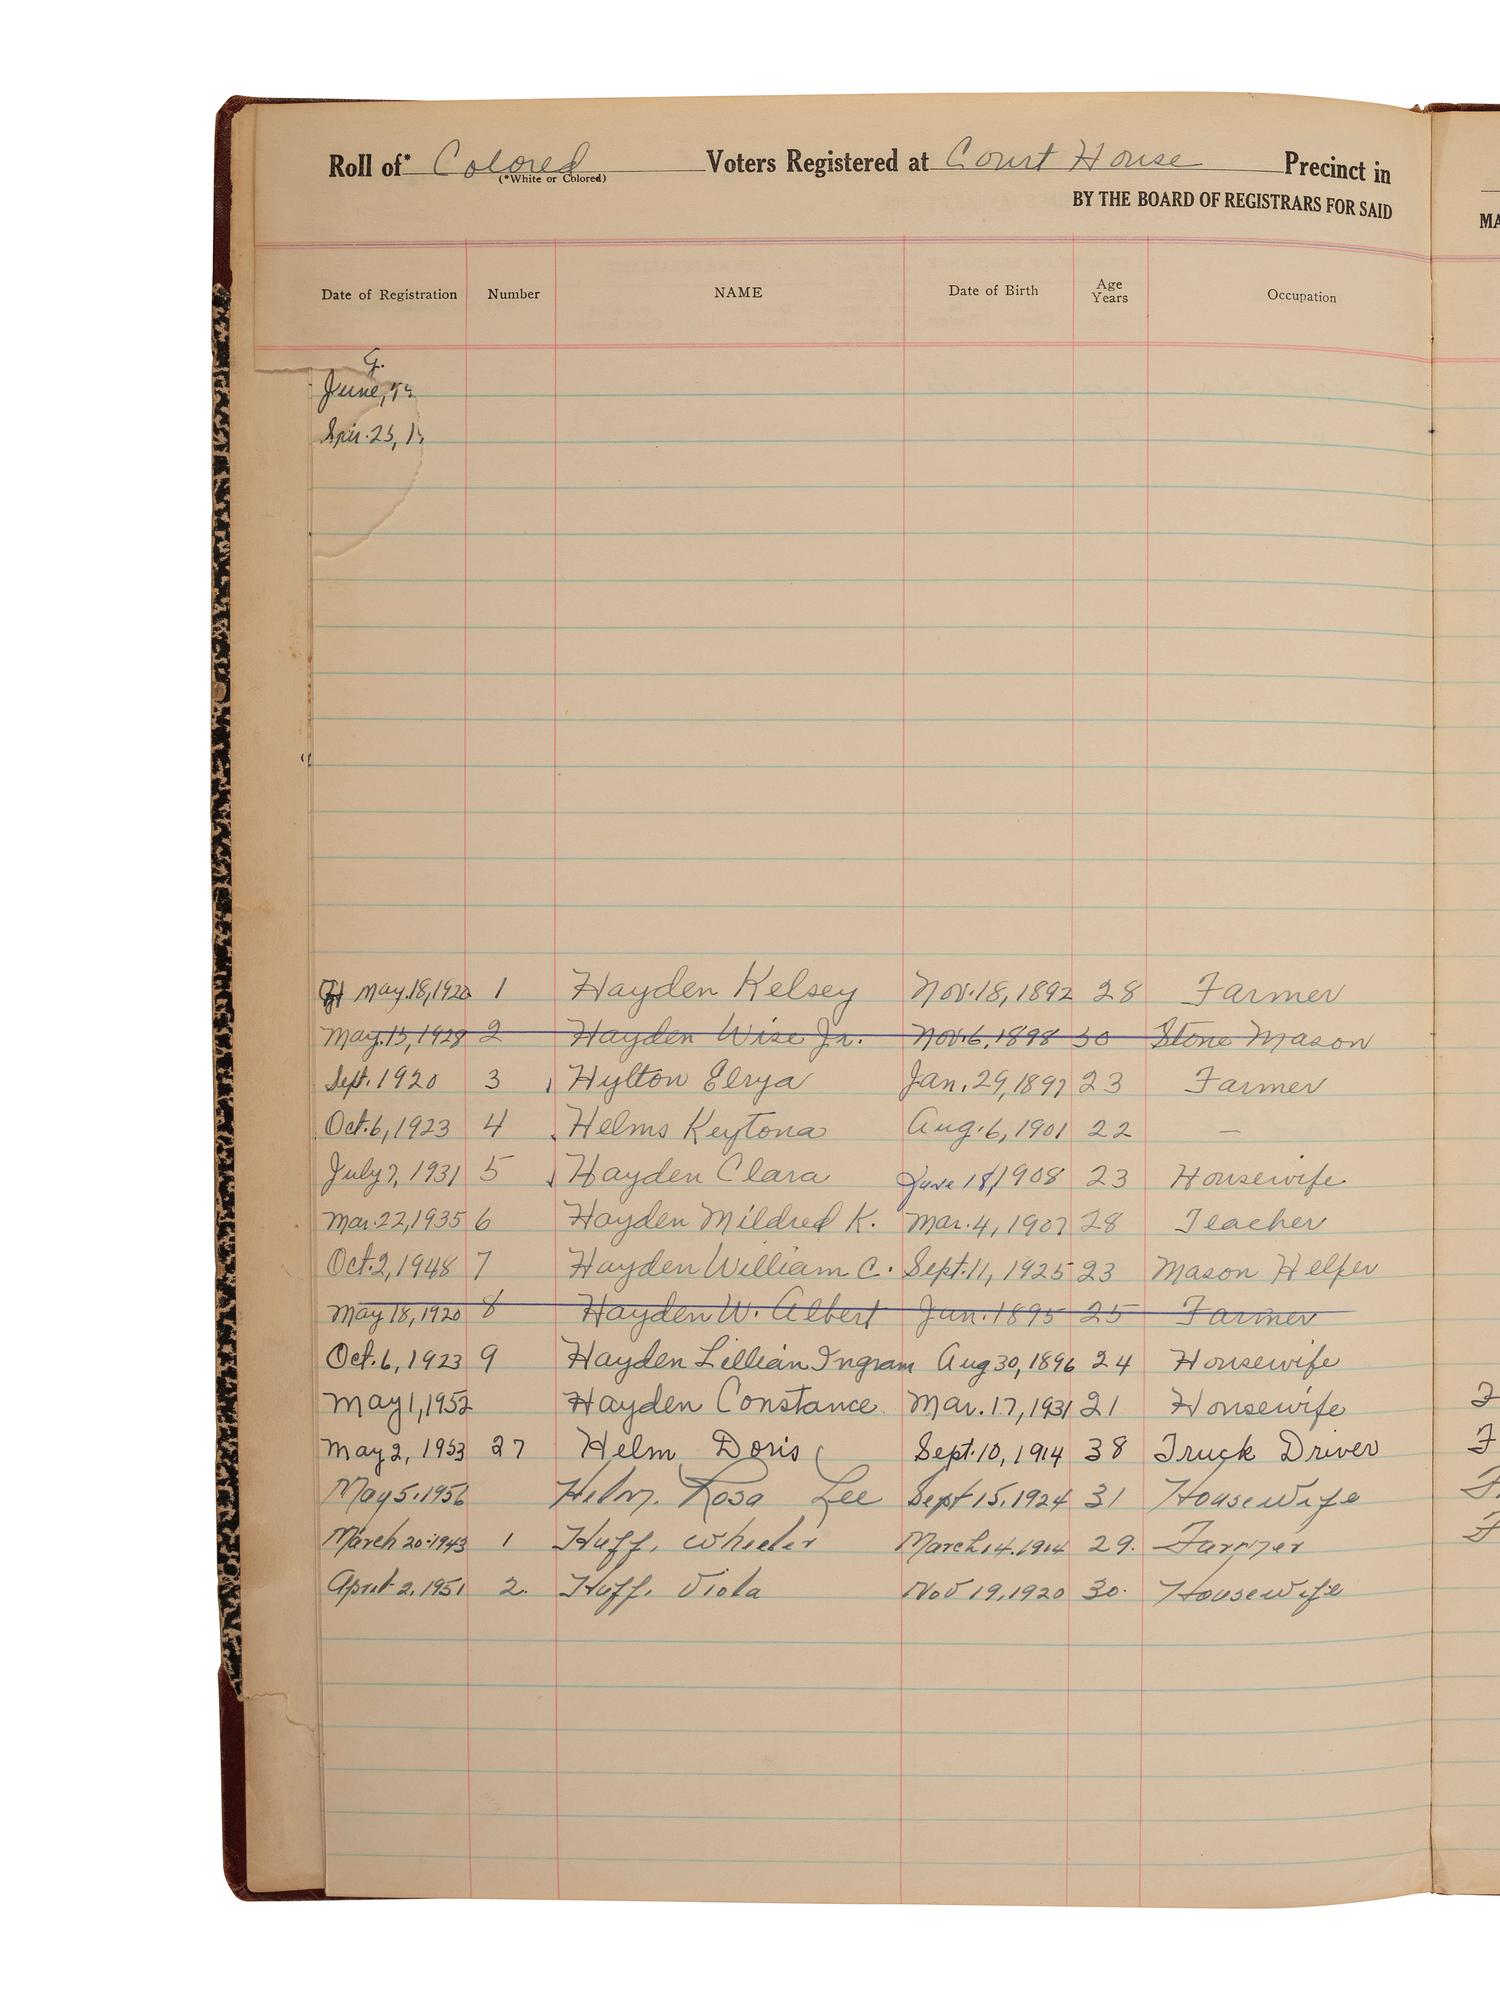 Roll of* Colored Voters Registered at Court House Precinct in
(*White or Colored)
BY THE BOARD OF REGISTRARS FOR SAID
MA
Date of Registration Number NAME Date of Birth Age Years Occupation
G.
June,
25, 1
H May.18,1920 1 Hayden Kelsey Nov.18,1892 28 Farmer
May.15,1928 2 Hayden Wise Jr. Nov.6,1898 30 Stone Mason
Sept. 1920 3 Hylton Elrya Jan.29,1897 23 Farmer
Oct.6,1923 4 Helms Keytona Aug.6,1901 22 —
July 7, 1931 5 Hayden Clara June 18/1908 23 Housewife
Mar.22,1935 6 Hayden Mildred K. Mar.4,1907 28 Teacher
Oct.2,1948 7 Hayden William C. Sept.11,1925 23 Mason Helper
May 18,1920 8 Hayden W. Albert Jan.1895 25 Farmer
Oct.6,1923 9 Hayden Lillian Ingram Aug 30,1896 24 Housewife
May 1,1952 Hayden Constance Mar.17,1931 21 Housewife
May 2, 1953 27 Helm Doris Sept.10,1914 38 Truck Driver
May 5.1956 Helm. Rosa Lee Sept 15.1924 31 Housewife
March 20-1943 1 Huff, Wheeler March 14.1914 29. Farmer
April 2.1951 2. Huff. Viola Nov 19,1920 30. Housewife